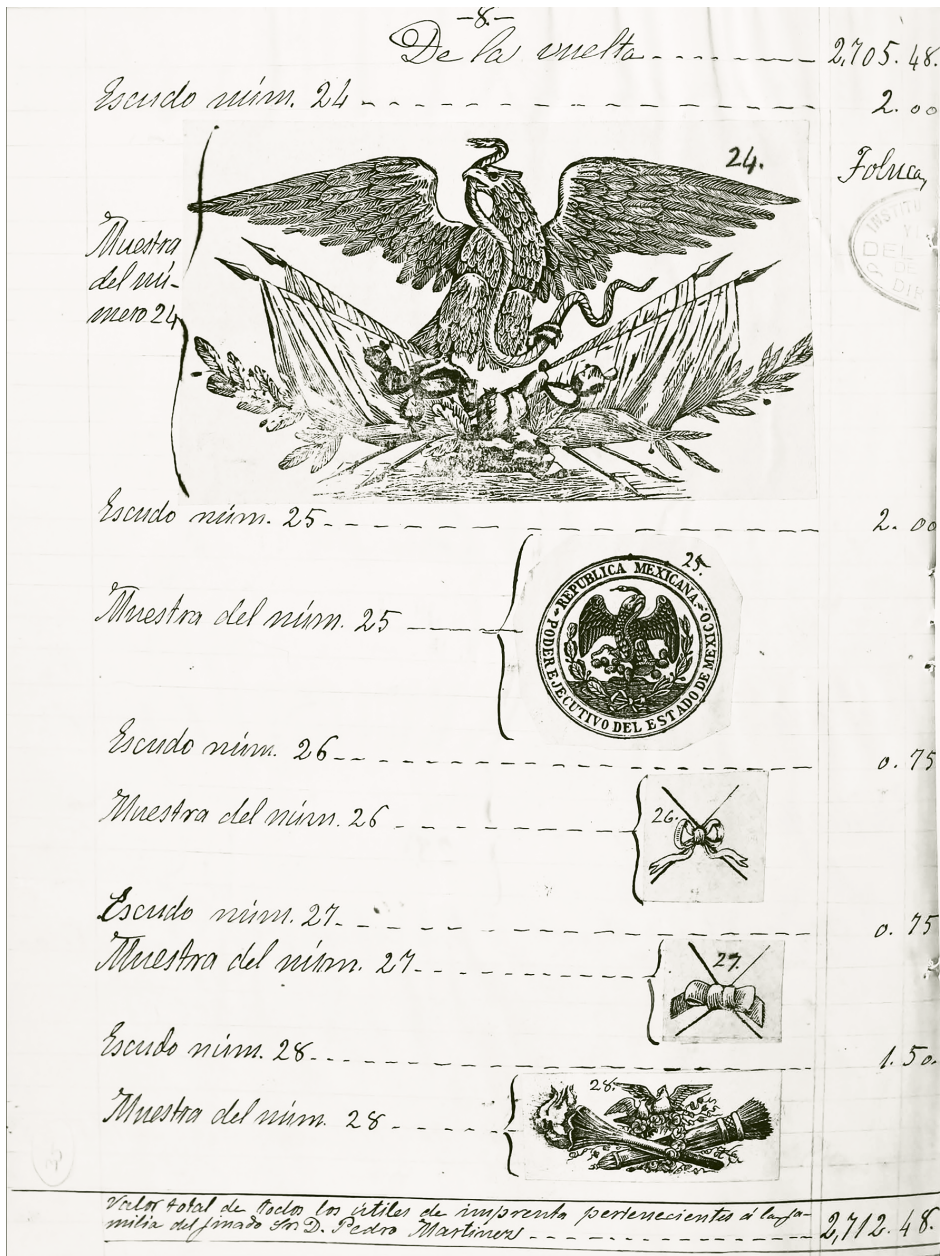 -8.-
De la vuelta 2,705.48.
Escudo núm. 24 2.00
24.
Toluca,
INSTITU
DEL
DE
DIR
Muestra
del nú-
mero 24
Escudo núm. 25 2.00
25.
REPUBLICA MEXICANA.
PODER EJECUTIVO DEL ESTADO DE MEXICO
Muestra del núm. 25
Escudo núm. 26 0.75
Muestra del núm. 26
26.
Escudo núm. 27 0.75
Muestra del núm. 27
27.
Escudo núm. 28 1.50.
Muestra del núm. 28
28.
Valor total de todos los útiles de imprenta pertenecientes á la fa-
milia del finado Sr. D. Pedro Martinez 2,712.48.